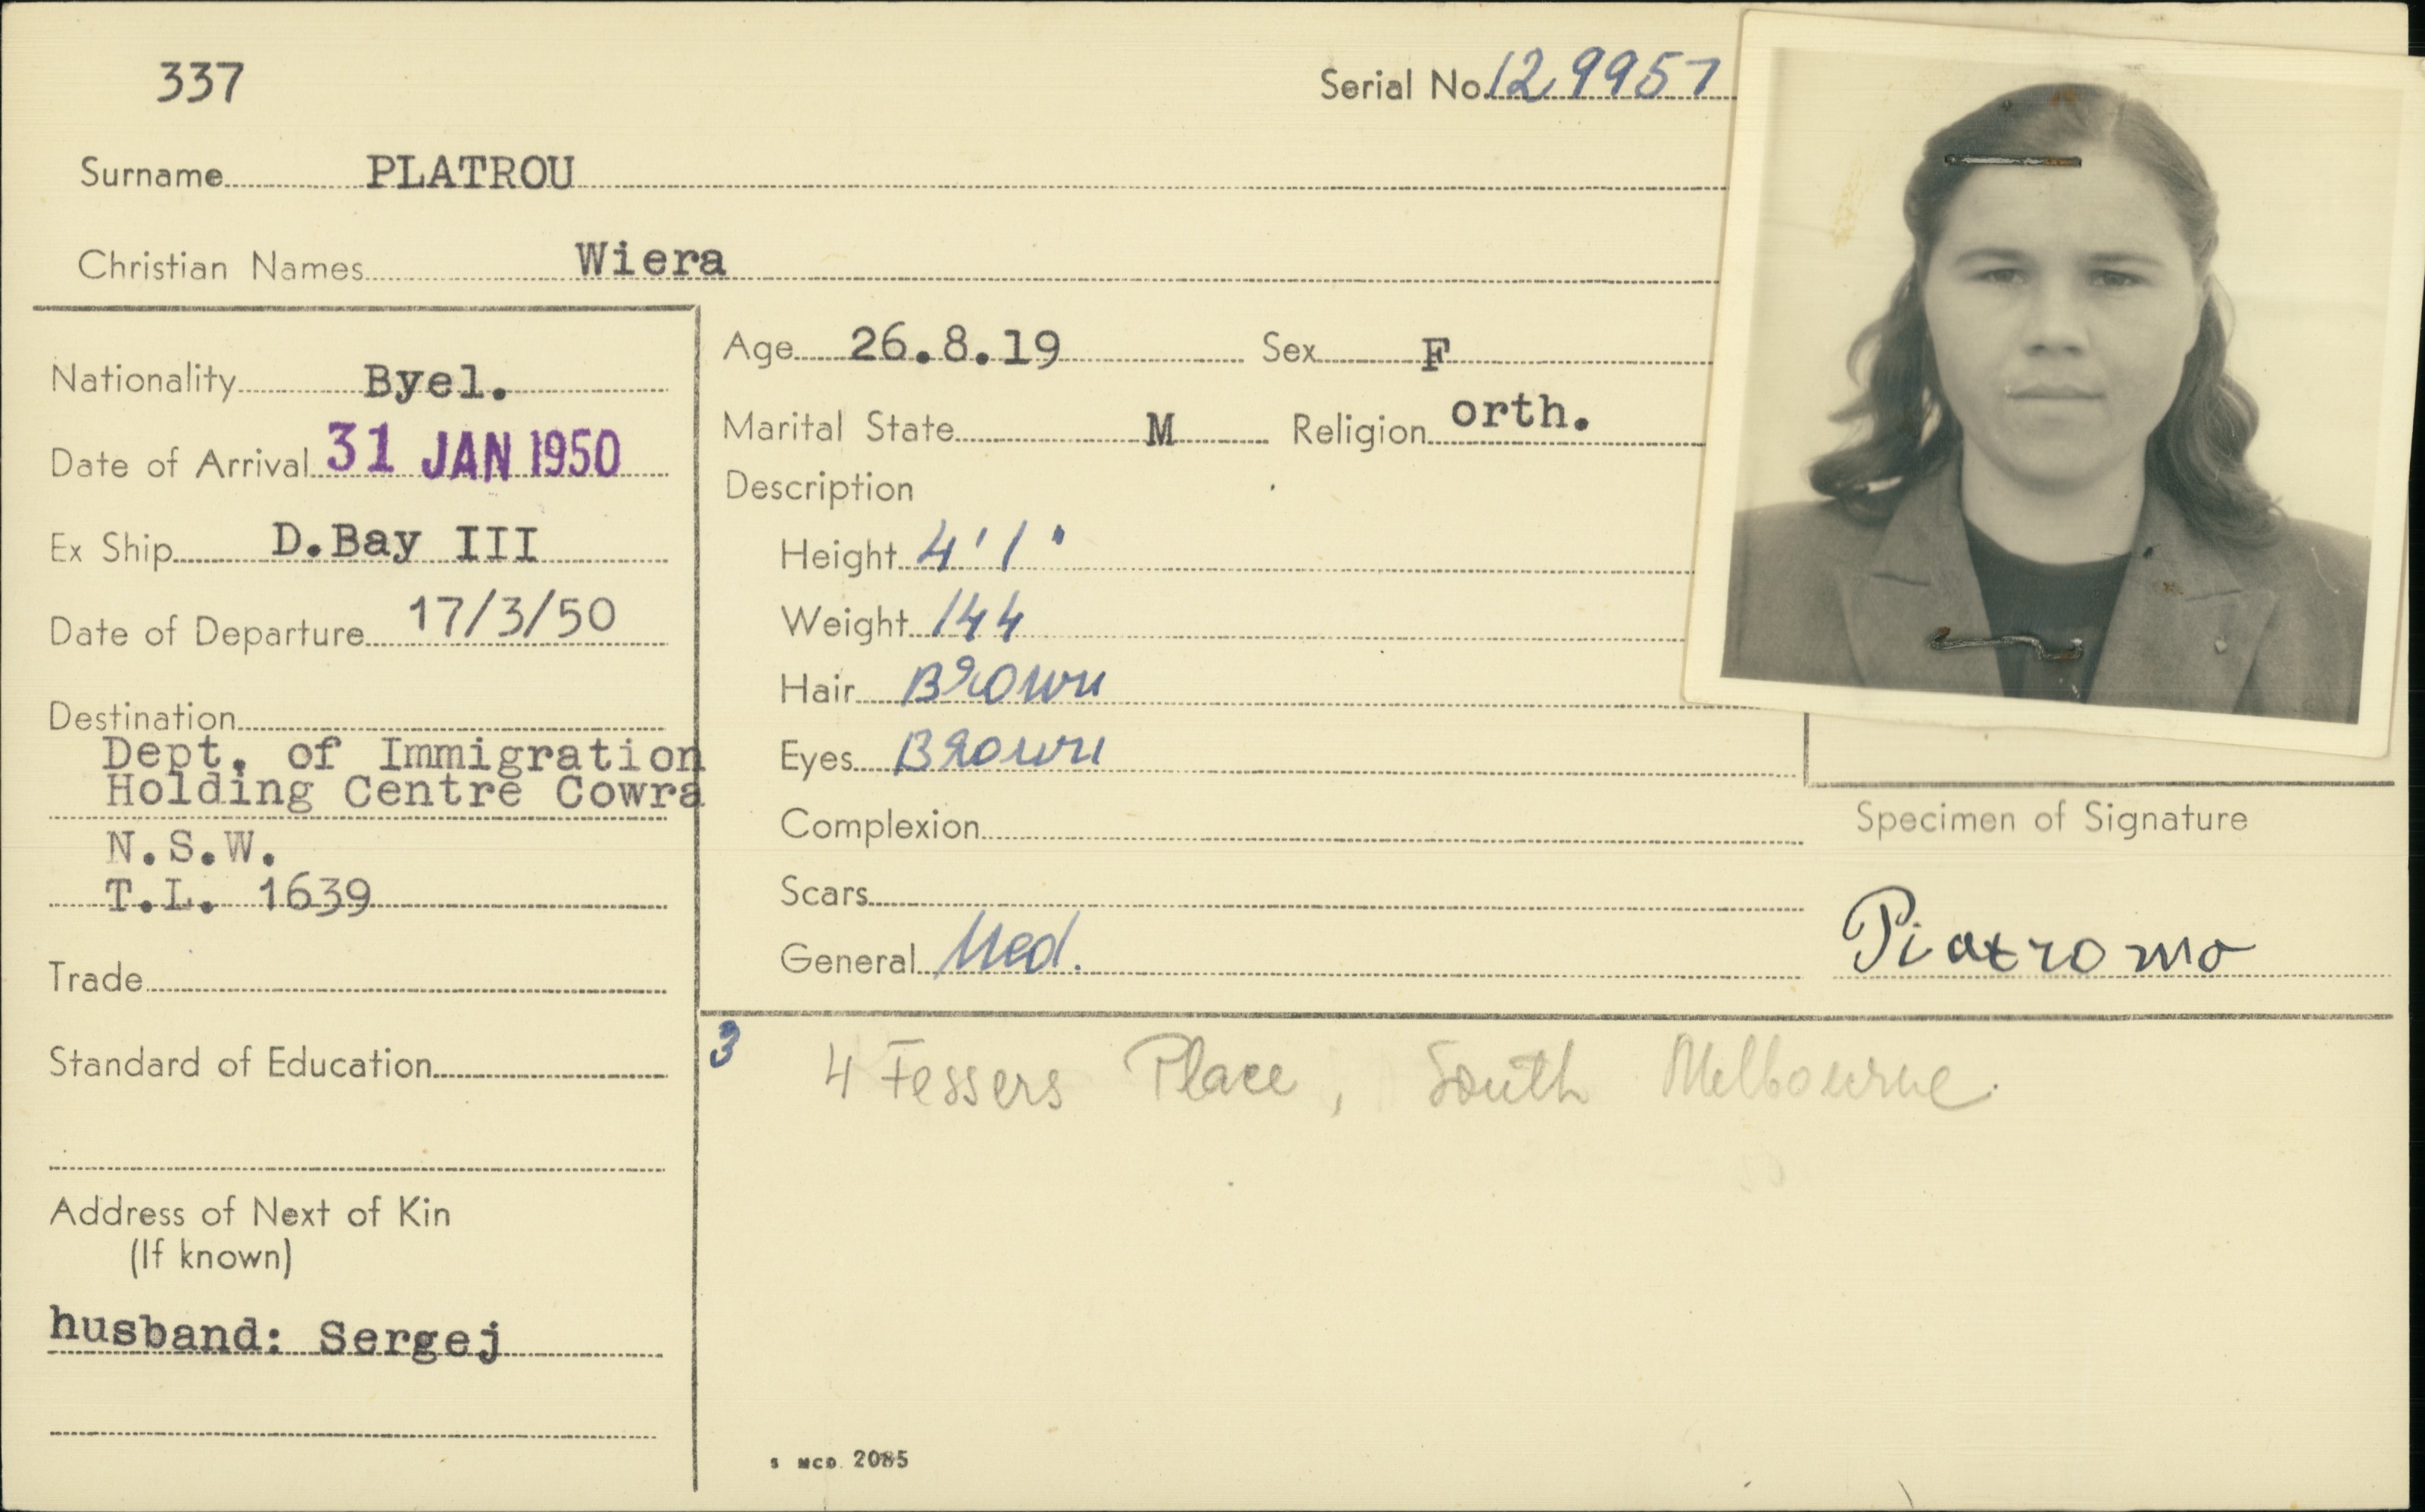 337
Serial No. 129957
Surname PLATROU
Christian Names Wiera
Nationality Byel.
Date of Arrival 31 JAN 1950
Ex Ship D.Bay III
Date of Departure 17/3/50
Destination
Dept. of Immigration
Holding Centre Cowra
N.S.W.
T.L. 1639
Trade
Standard of Education
Address of Next of Kin
(If known)
husband: Sergej
Age 26.8.19 Sex F
Marital State M Religion orth.
Description
Height 4'1"
Weight 144
Hair Brown
Eyes Brown
Complexion
Scars
General Med.
Specimen of Signature
3 4 Fessers Place, South Melbourne.
S MCD 2085